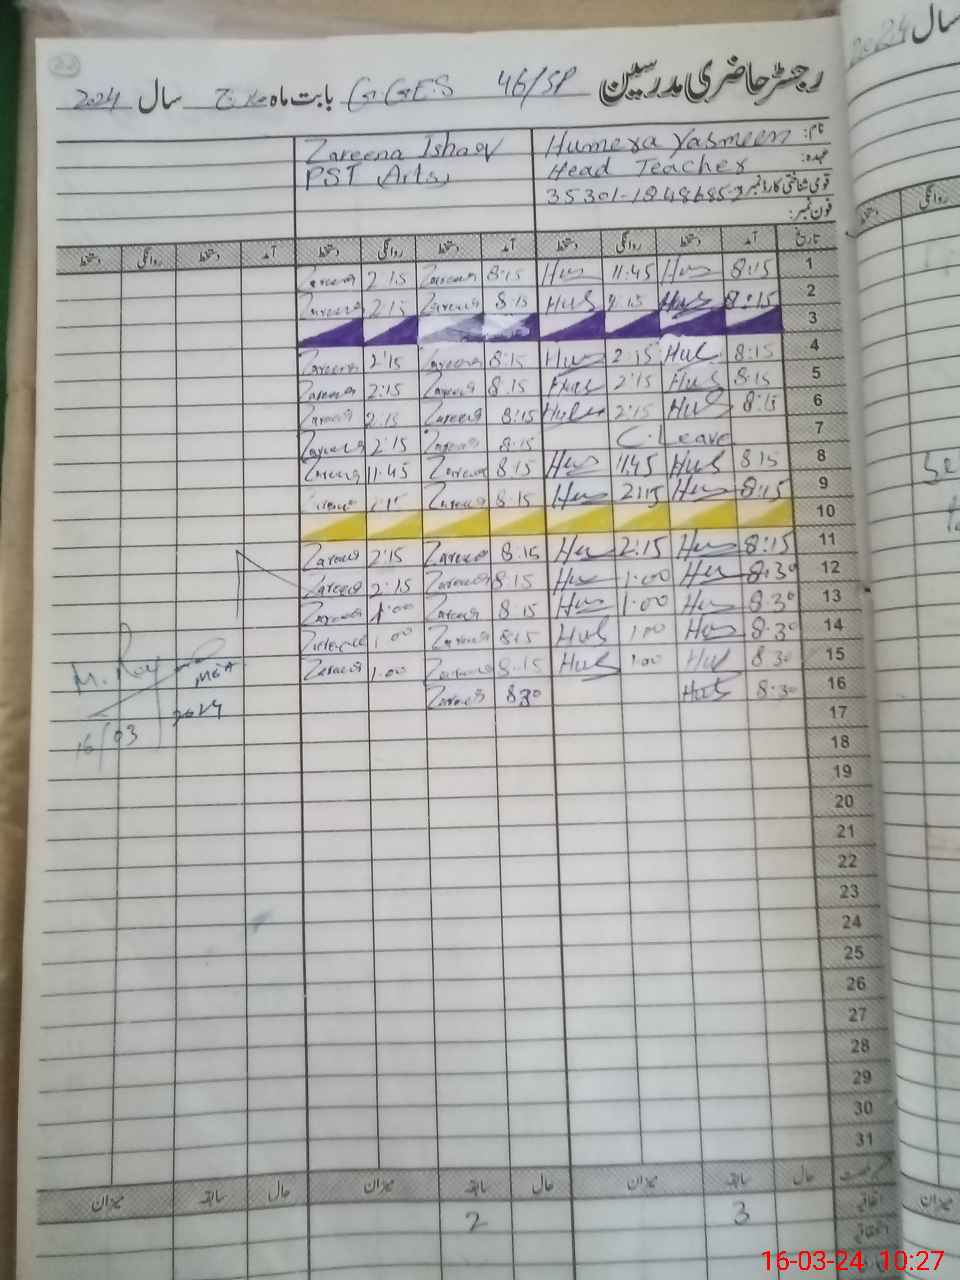 رجسٹر حاضری مدرسین 46/SP GGES بابت ماہ مارچ سال 2024
سال 2024
نام: Humera Yasmeen Zareena Ishaq
عہدہ: Head Teacher PST (Arts)
قومی شناختی کارڈ نمبر
فون نمبر:
تاریخ آمد دستخط روانگی دستخط آمد دستخط روانگی دستخط آمد دستخط روانگی دستخط
روانگی دستخط
1 8:15 Hus 11:45 Hus 8:15 Zareena 2:15 Zareena
2 8:15 Hus Hus 8:15 Zareena 2:15 Zareena
3
4 8:15 Hus 2:15 Hus 8:15 Zareena 2:15 Zareena
5 8:15 Hus 2:15 Hus 8:15 Zareena 2:15 Zareena
6 8:15 Hus 2:15 Hus 8:15 Zareena 2:15 Zareena
7 C.Leave 8:15 Zareena 2:15 Zareena
8 8:15 Hus 11:45 Hus 8:15 Zareena 11:45 Zareena
9 8:15 Hus 2:15 Hus 8:15 Zareena Zareena
10
11 8:15 Hus 2:15 Hus 8:15 Zareena 2:15 Zareena
12 8:30 Hus 1:00 Hus 8:15 Zareena 2:15 Zareena
13 8:30 Hus 1:00 Hus 8:15 Zareena 1:00 Zareena
14 8:30 Hus 1:00 Hus 8:15 Zareena 1:00 Zareena
15 8:30 Hus 1:00 Hus 8:15 Zareena 1:00 Zareena
16 8:30 Hus 8:30 Zareena
MEA
16/03 2024
17
18
19
20
21
22
23
24
25
26
27
28
29
30
31
حال سابقہ میزان حال سابقہ میزان حال سابقہ میزان
میزان
اتفاقی 3 2
16-03-24 10:27